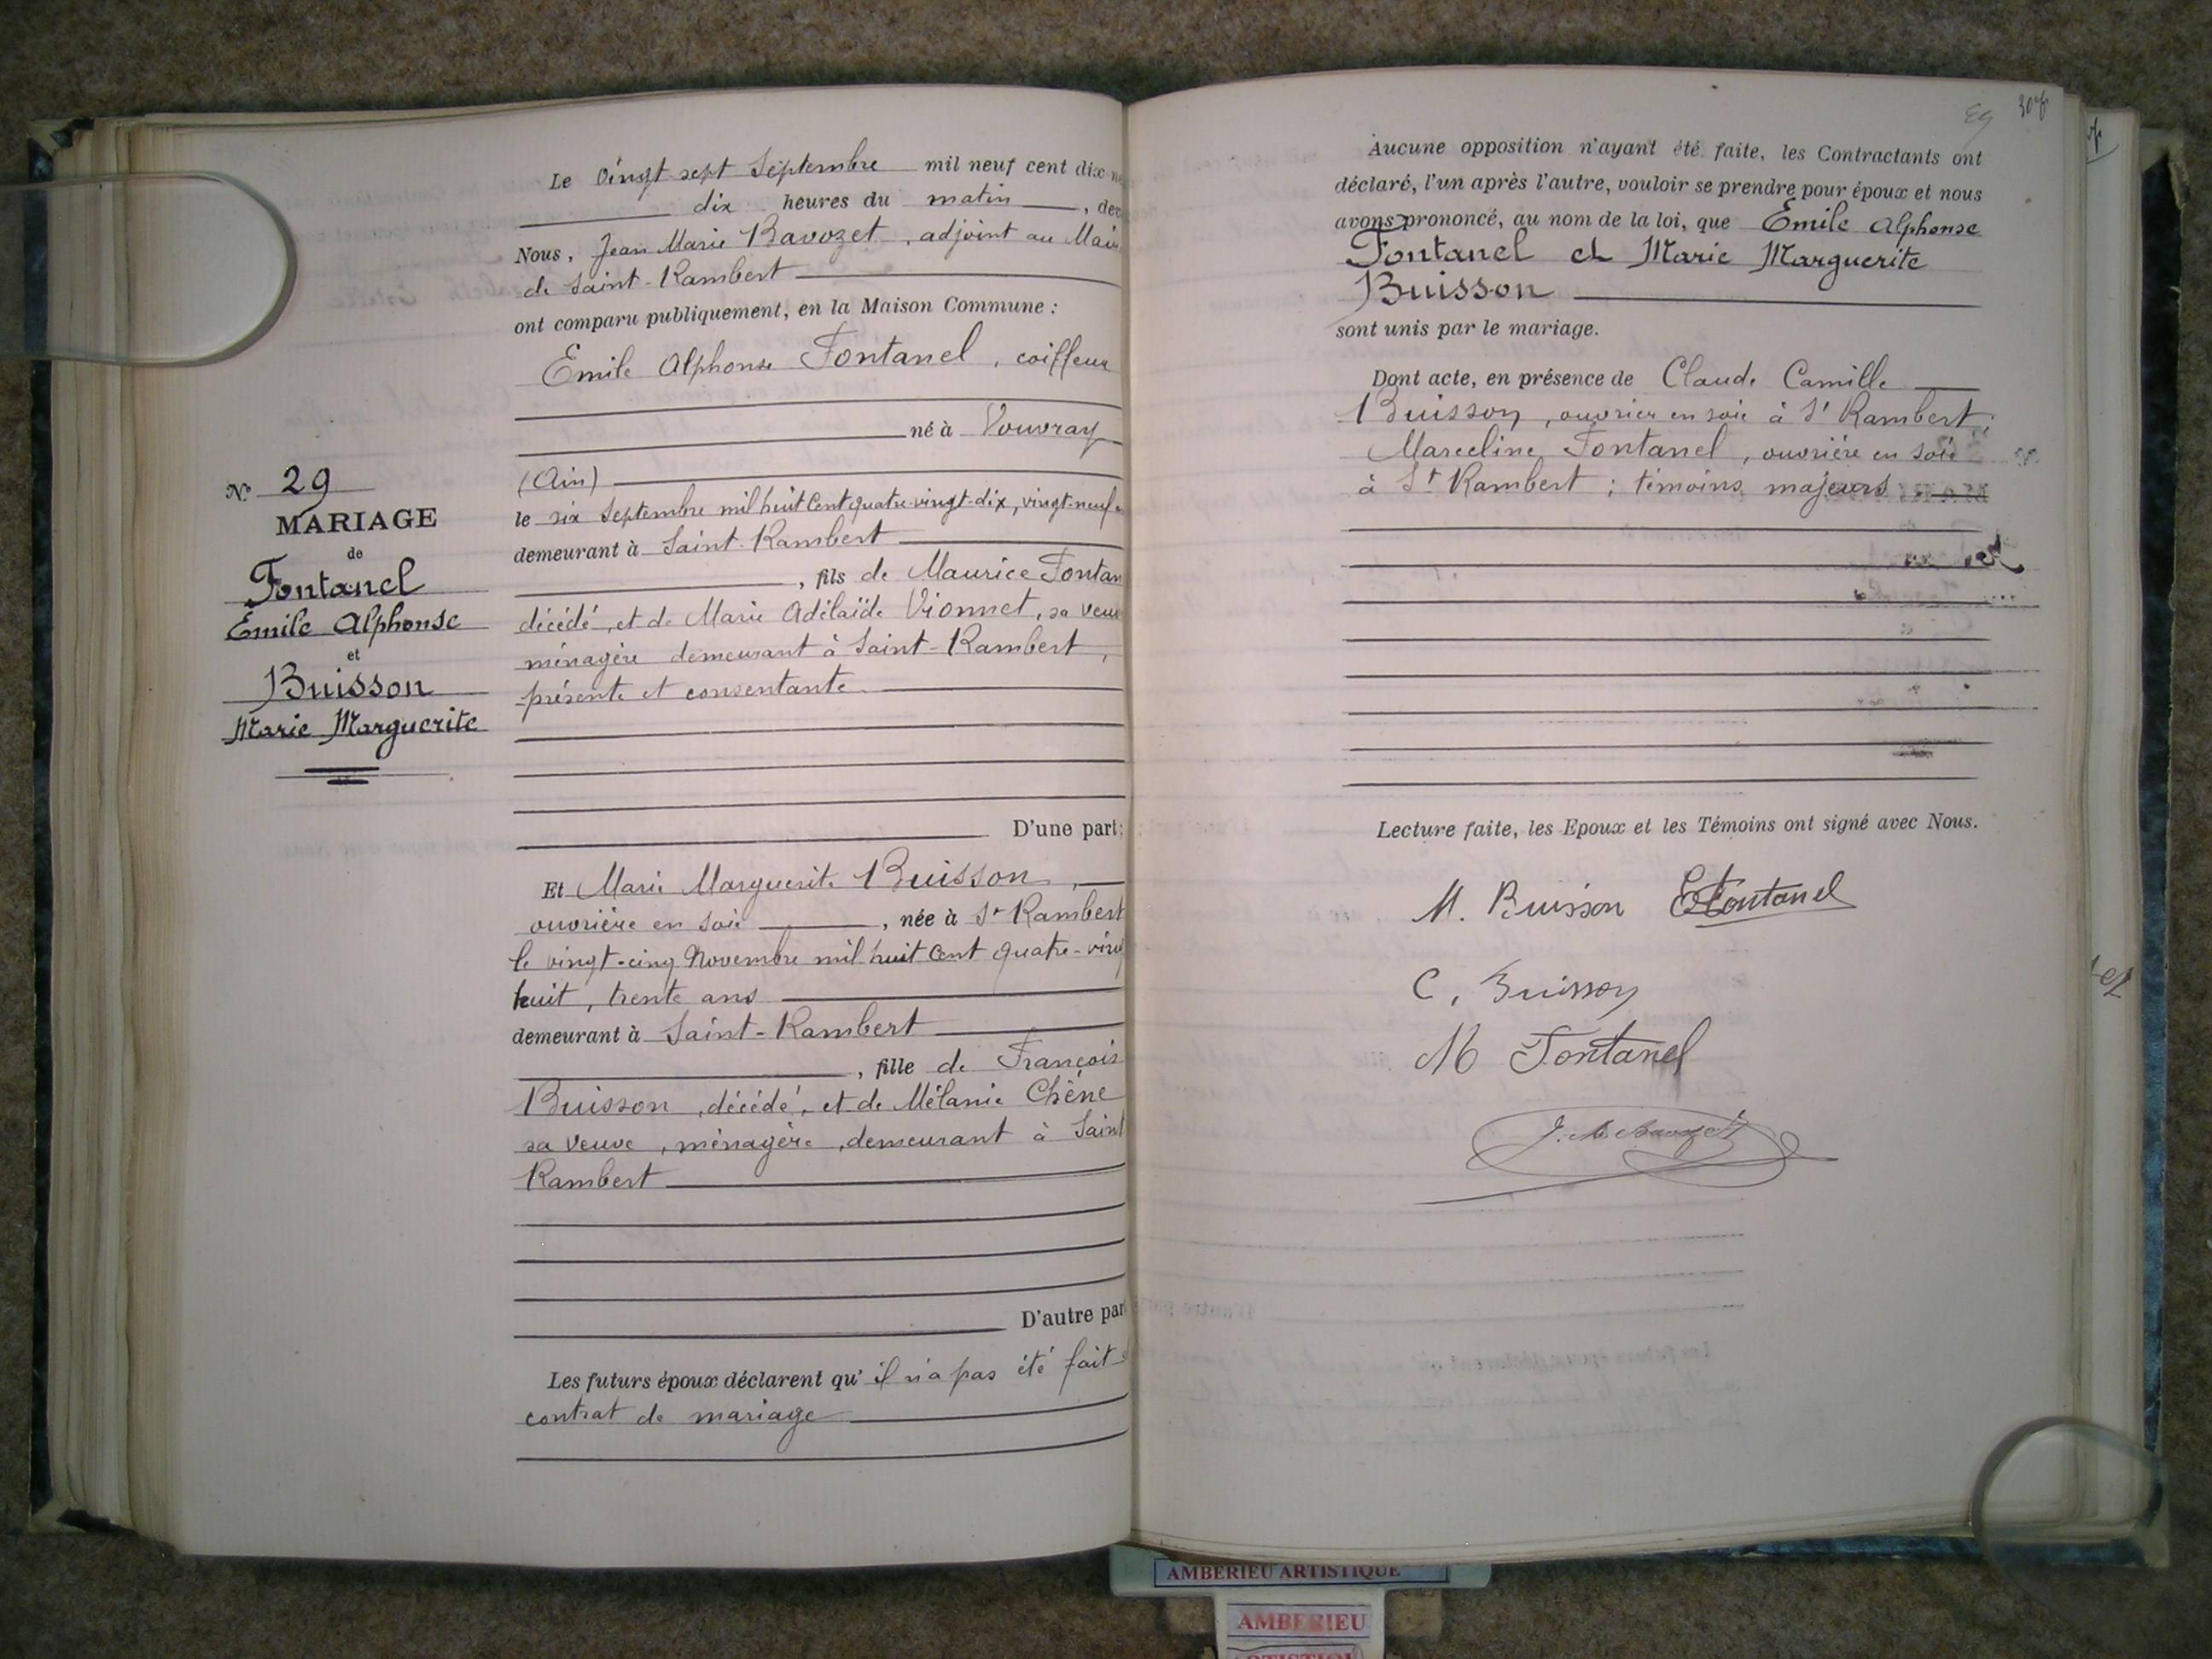 N° 29
MARIAGE
de
Fontanel
Émile Alphonse
et
Buisson
Marie Marguerite
Le Vingt sept Septembre mil neuf cent dix-ne
dix heures du matin, dev
Nous, Jean Marie Bavozet, adjoint au Mair
de Saint-Rambert
ont comparu publiquement, en la Maison Commune :
Emile Alphonse Fontanel, coiffeur
né à Vouvray
(Ain)
le six Septembre mil huit Cent quatre-vingt-dix, vingt-neuf a
demeurant à Saint-Rambert
, fils de Maurice Fontan
décédé, et de Marie Adélaïde Vionnet, sa veuv
ménagère demeurant à Saint-Rambert,
présente et consentante
D'une part;
Et Marie Marguerite Buisson,
ouvrière en soie, née à St Rambert
le vingt-cinq Novembre mil huit Cent quatre-ving
huit, trente ans
demeurant à Saint-Rambert
, fille de François
Buisson, décédé, et de Mélanie Chêne
sa veuve, ménagère, demeurant à Saint
Rambert
D'autre par
Les futurs époux déclarent qu'il n'a pas été fait
contrat de mariage
30f
Aucune opposition n'ayant été faite, les Contractants ont
déclaré, l'un après l'autre, vouloir se prendre pour époux et nous
avons prononcé, au nom de la loi, que Émile Alphonse
Fontanel et Marie Marguerite
Buisson
sont unis par le mariage.
Dont acte, en présence de Claude Camille
Buisson, ouvrier en soie à St Rambert;
Marceline Fontanel, ouvrière en soie
à St Rambert ; témoins majeurs
Lecture faite, les Epoux et les Témoins ont signé avec Nous.
M. Buisson E Fontanel
C, Buisson
M Fontanel
J. M. Bavozet
AMBERIEU ARTISTIQUE
AMBERIEU